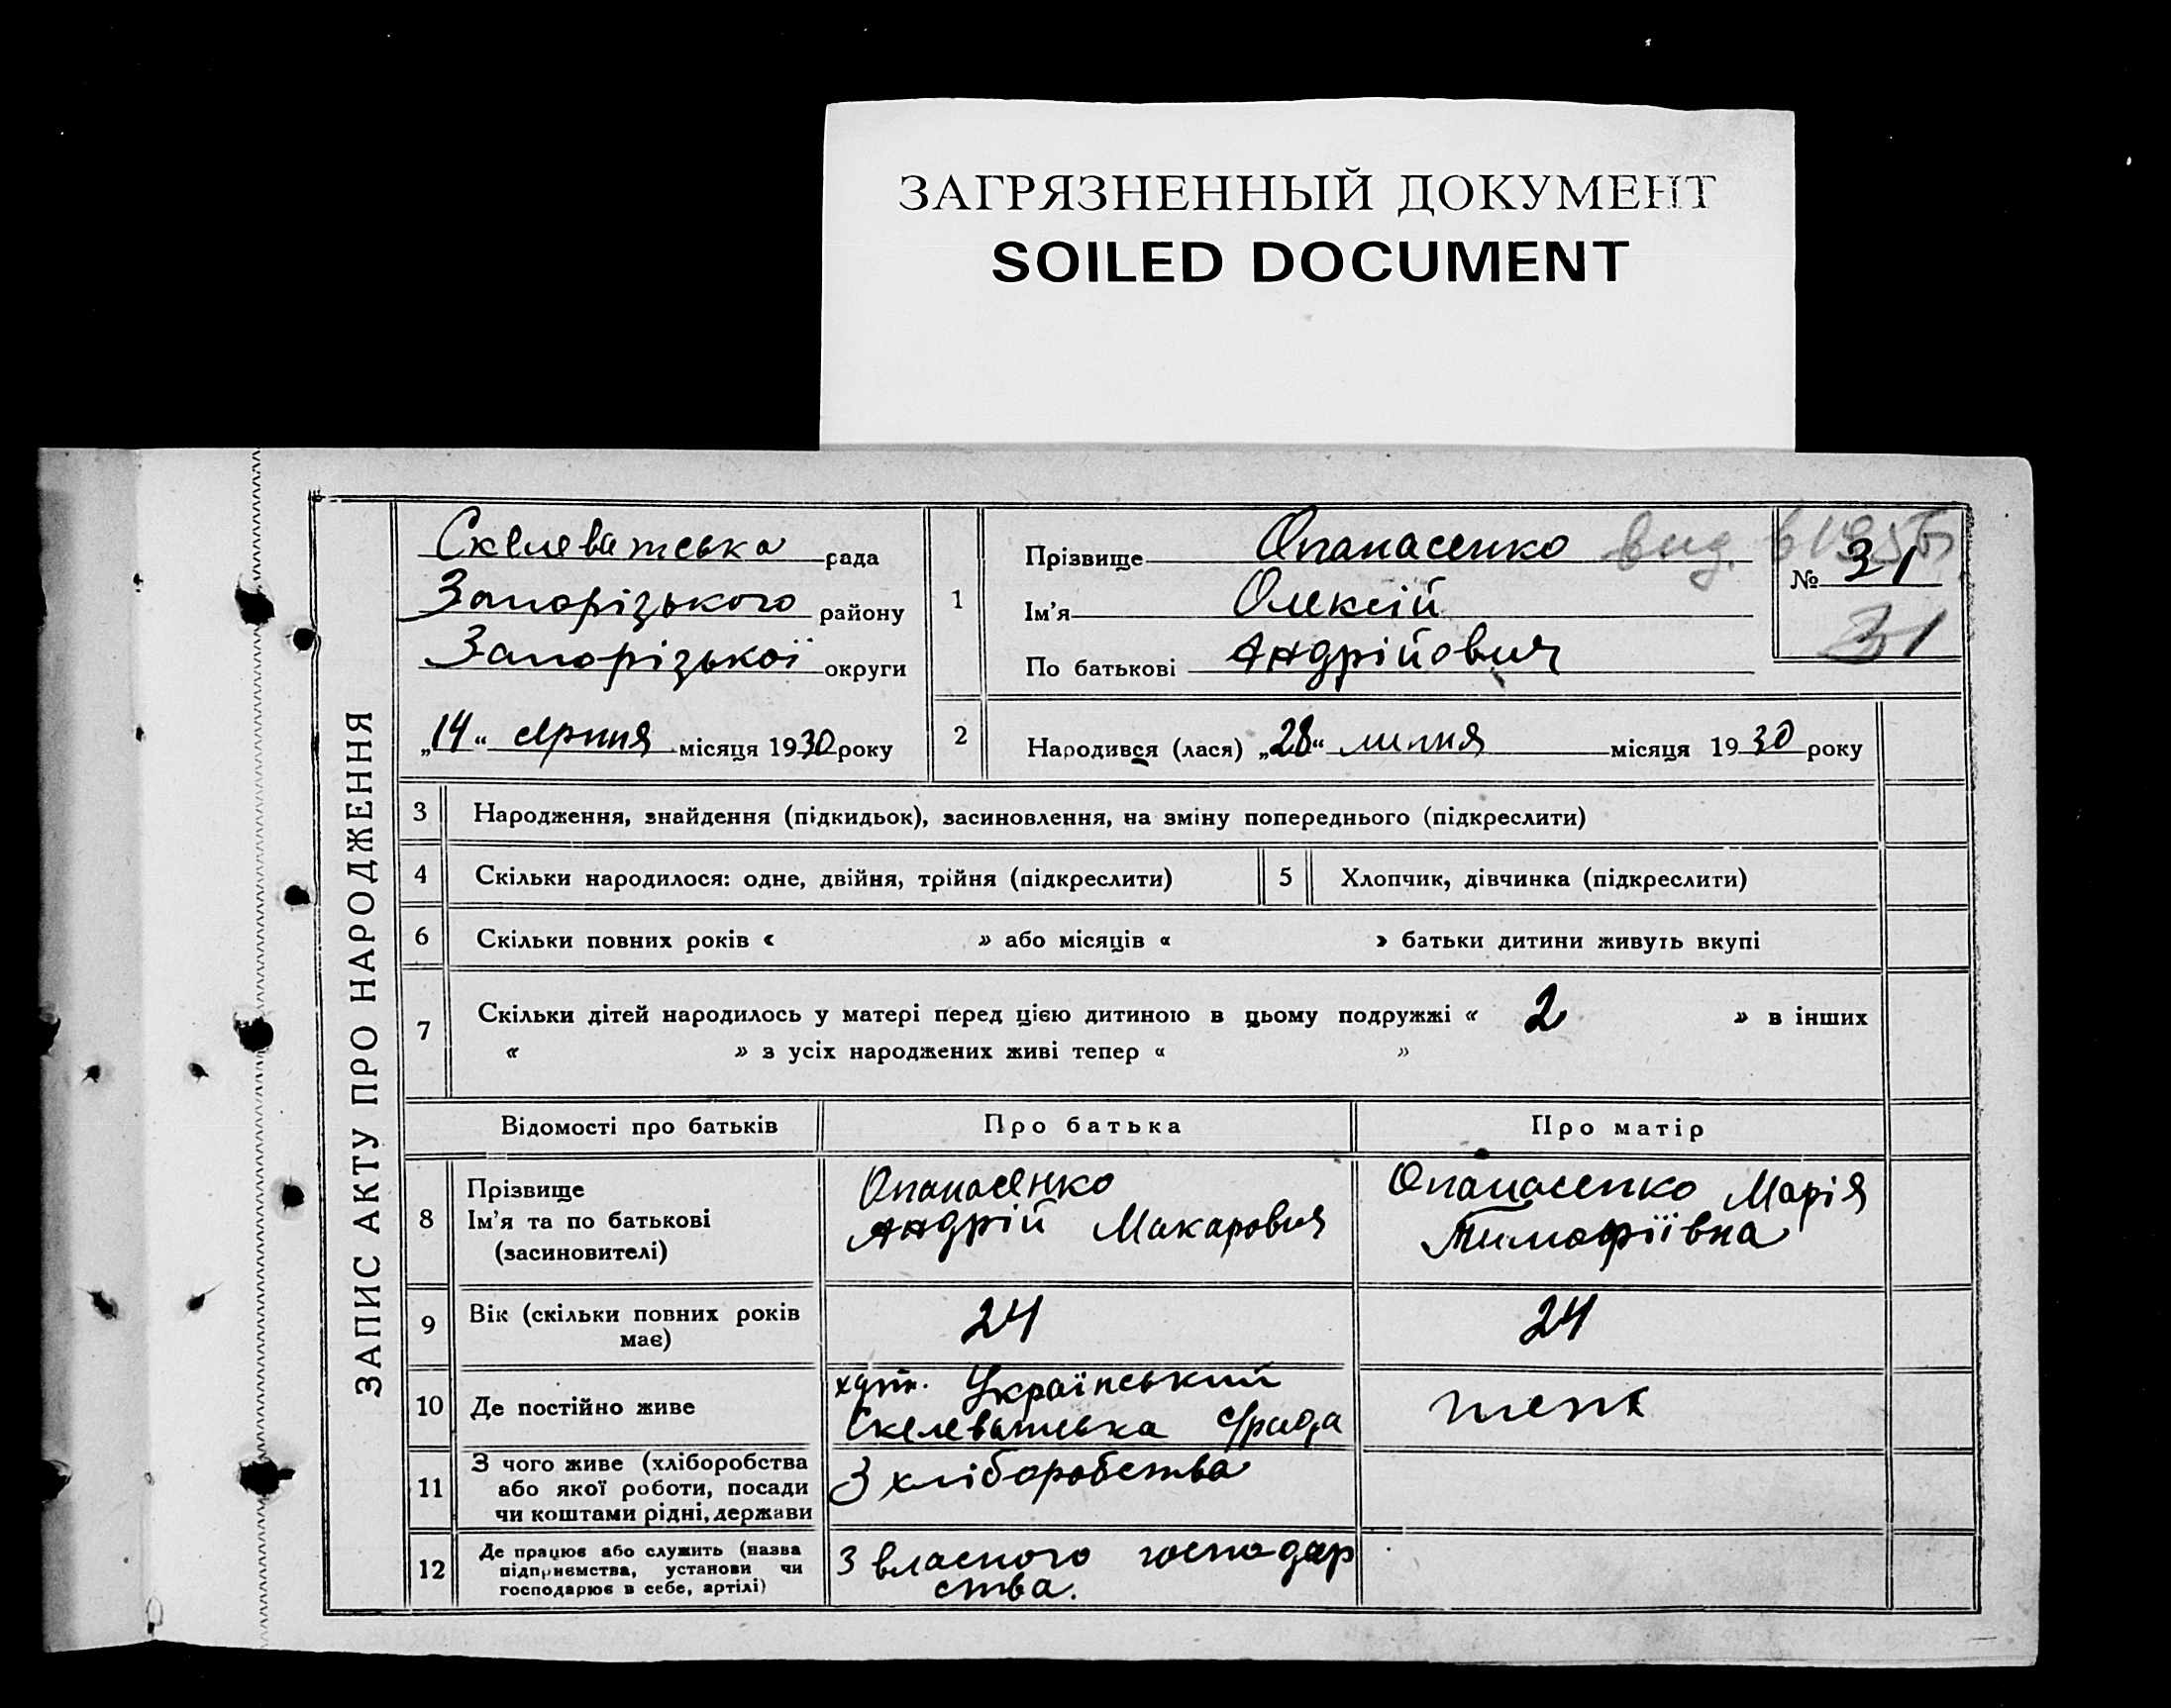 ЗАГРЯЗНЕННЫЙ ДОКУМЕНТ
SOILED DOCUMENT
ЗАПИС АКТУ ПРО НАРОДЖЕННЯ
Скелеватська рада
Запорізького району
Запорізької округи
„14“ серпня місяця 1930 року
1
Прізвище Опанасенко вид. в 1956
Ім'я Олексій
По батькові Андрійович
№ 31
31
2 Народився (лася) „28“ липня місяця 1930 року
3 Народження, знайдення (підкидьок), засиновлення, на зміну попереднього (підкреслити)
4 Скільки народилося: одне, двійня, трійня (підкреслити) 5 Хлопчик, дівчинка (підкреслити)
6 Скільки повних років « » або місяців « » батьки дитини живуть вкупі
7 Скільки дітей народилось у матері перед цією дитиною в цьому подружжі « 2 » в інших
« » з усіх народжених живі тепер « »
Відомості про батьків Про батька Про матір
8 Прізвище
Ім'я та по батькові
(засиновителі)
Опанасенко
Андрій Макарович
Опанасенко Марія
Тимофіївна
9 Вік (скільки повних років
має)
24
24
10 Де постійно живе
хут. Український
Скелеватська с/рада
теж
11 З чого живе (хліборобства
або якої роботи, посади
чи коштами рідні, держави
З хліборобства
12 Де працює або служить (назва
підприємства, установи чи
господарює в себе, артілі)
З власного господар
ства.